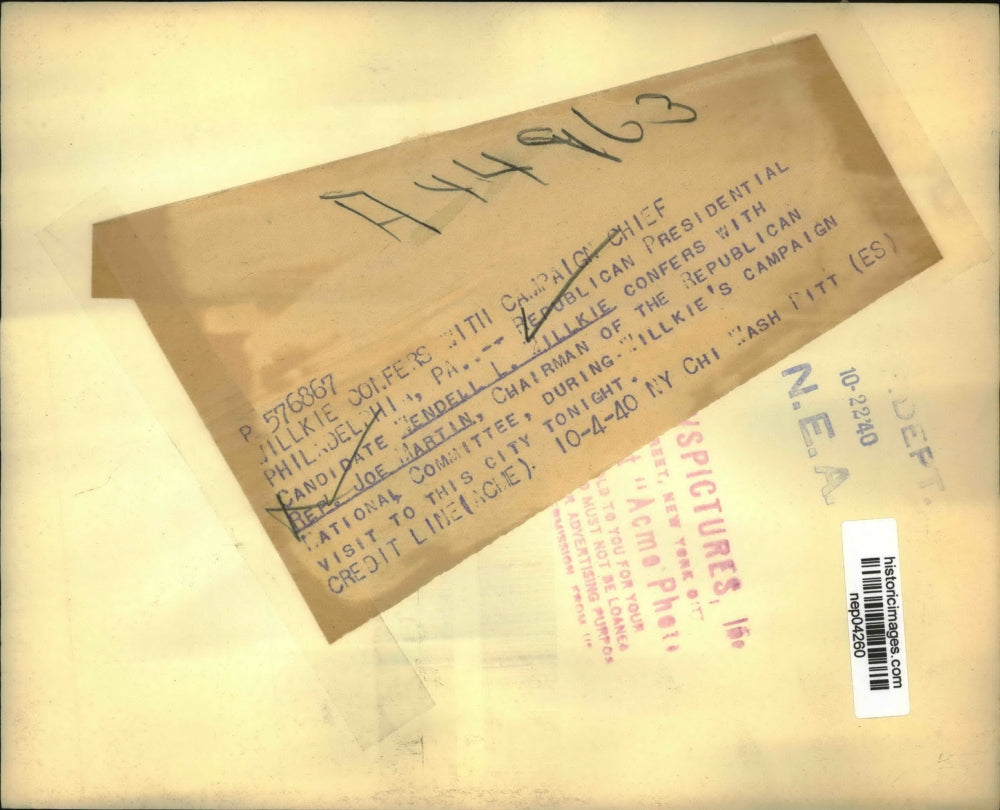 A44963
P 576867
WILLKIE CONFERS WITH CAMPAIGN CHIEF
PHILADELPHIA, PA.-- REPUBLICAN PRESIDENTIAL
CANDIDATE WENDELL L. WILLKIE CONFERS WITH
REP. JOE MARTIN, CHAIRMAN OF THE REPUBLICAN
NATIONAL COMMITTEE, DURING WILLKIE'S CAMPAIGN
VISIT TO THIS CITY TONIGHT.
CREDIT LINE (ACME) 10-4-40 NY CHI WASH PITT (ES)
YSPICTURES, Inc
REET, NEW YORK CIT
"Acme Phot
LD TO YOU FOR YOUR
MUST NOT BE LOANED
ADVERTISING PURPOS
RMISSION FROM
DEPT.
10-22-40
N.E.A.
historicimages.com
nep04260